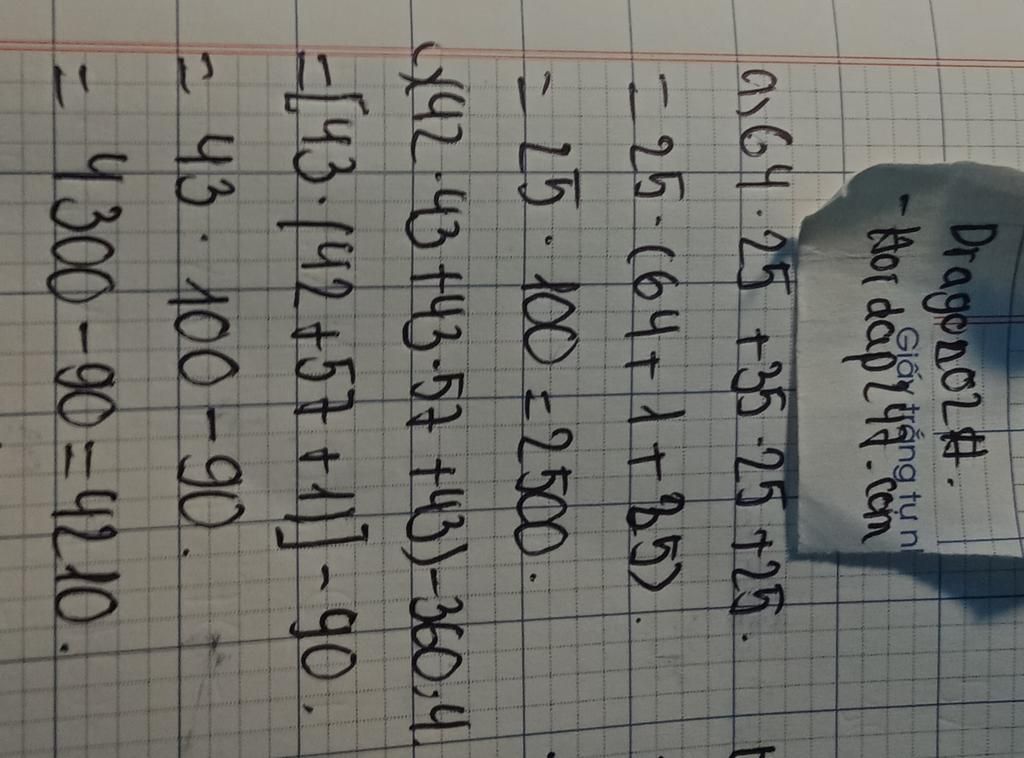 Dragon02#.
Giấy trắng tự n
- Hoi dap247.com
a, 64 . 25 + 35 . 25 + 25.
= 25 . (64 + 1 + 35).
= 25 . 100 = 2500.
c) (42 . 43 + 43 . 57 + 43) - 360,4
= [43 . (42 + 57 + 1)] - 90.
= 43 . 100 - 90.
= 4300 - 90 = 4210.